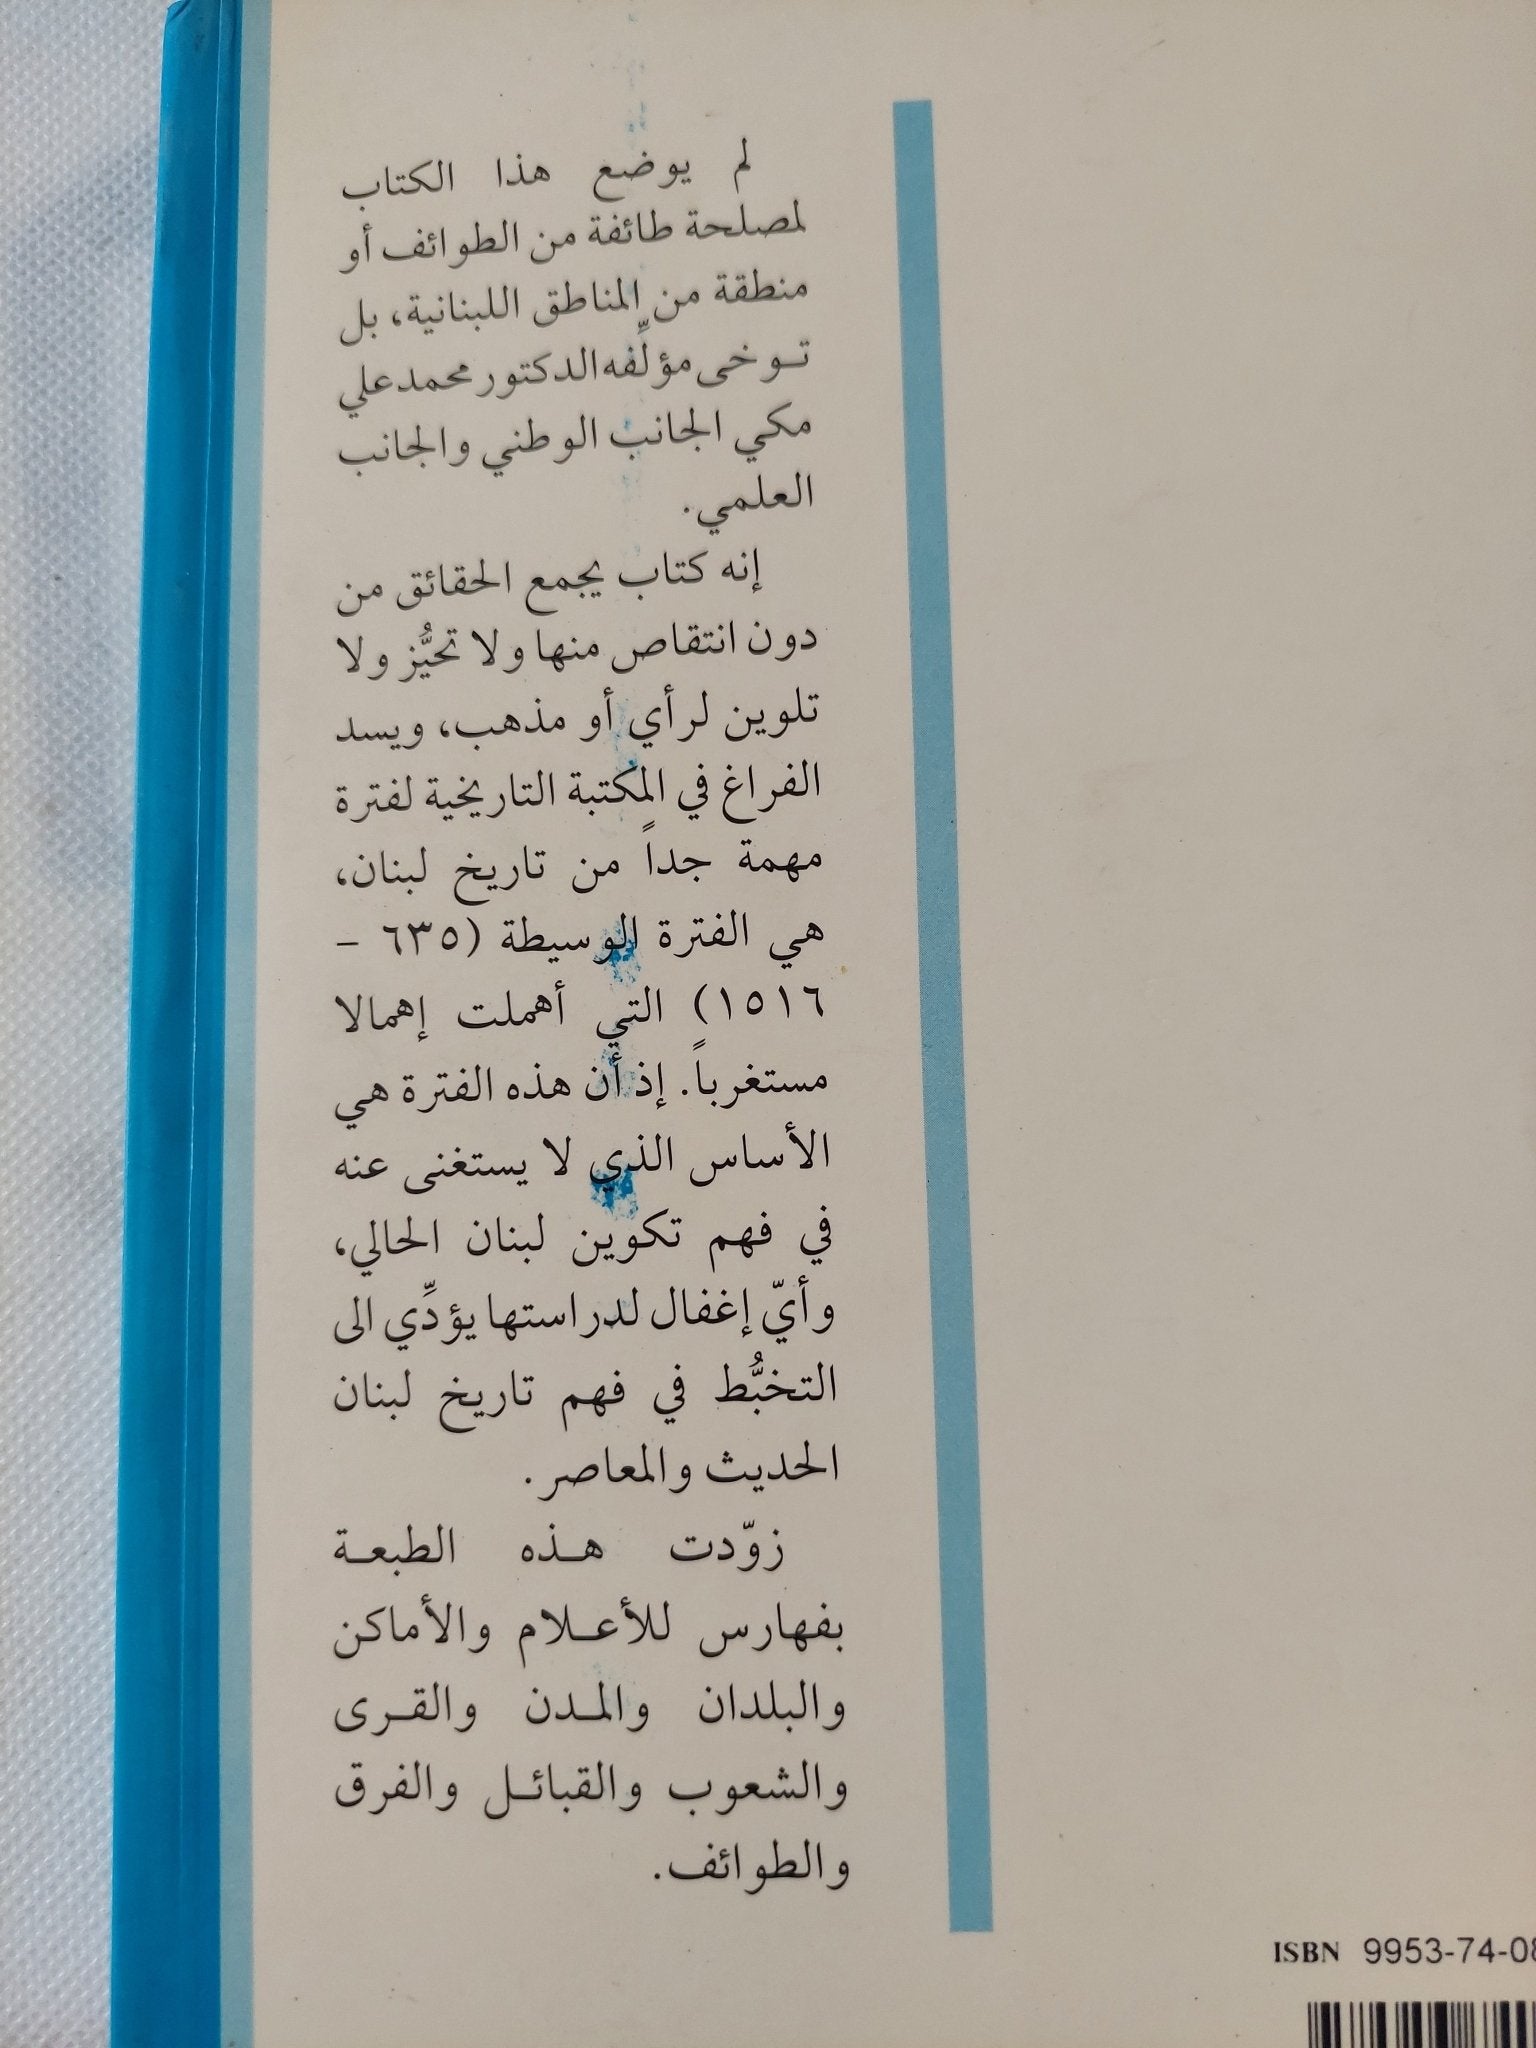 لم يوضع هذا الكتاب
لمصلحة طائفة من الطوائف أو
منطقة من المناطق اللبنانية، بل
توخى مؤلِّفه الدكتور محمد علي
مكي الجانب الوطني والجانب
العلمي.
إنه كتاب يجمع الحقائق من
دون انتقاص منها ولا تحيُّز ولا
تلوين لرأي أو مذهب، ويسد
الفراغ في المكتبة التاريخية لفترة
مهمة جداً من تاريخ لبنان،
هي الفترة الوسيطة (٦٣٥ –
١٥١٦) التي أهملت إهمالا
مستغرباً. إذ أن هذه الفترة هي
الأساس الذي لا يستغنى عنه
في فهم تكوين لبنان الحالي،
وأيّ إغفال لدراستها يؤدِّي الى
التخبُّط في فهم تاريخ لبنان
الحديث والمعاصر.
زوّدت هـذه الطبعـة
بفهارس للأعـلام والأماكن
والبلدان والمـدن والقـرى
والشعوب والقبائـل والفرق
والطوائف.
ISBN 9953-74-08